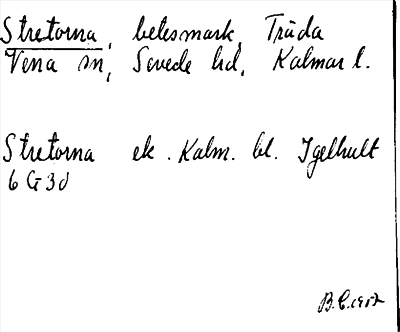 Stretorna, betesmark, Träda
Vena sn, Sevede hd, Kalmar l.
Stretorna ek. Kalm. bl. Igelhult
6 G 3 d